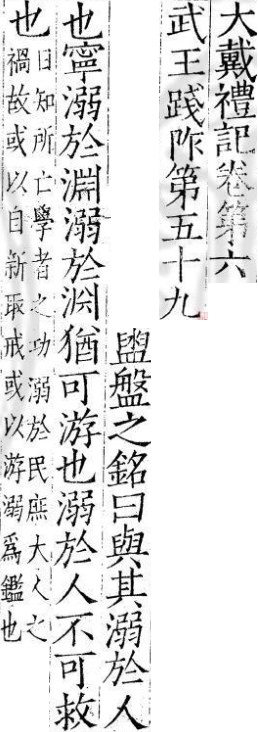 大戴禮記卷第六
武王踐阼第五十九
盥盤之銘曰與其溺於人
也寧溺於淵溺於渊猶可游也溺於人不可救
也
日知所亡學者之功溺於民庶大人之
禍故或以自新取戒或以游溺爲鑑也